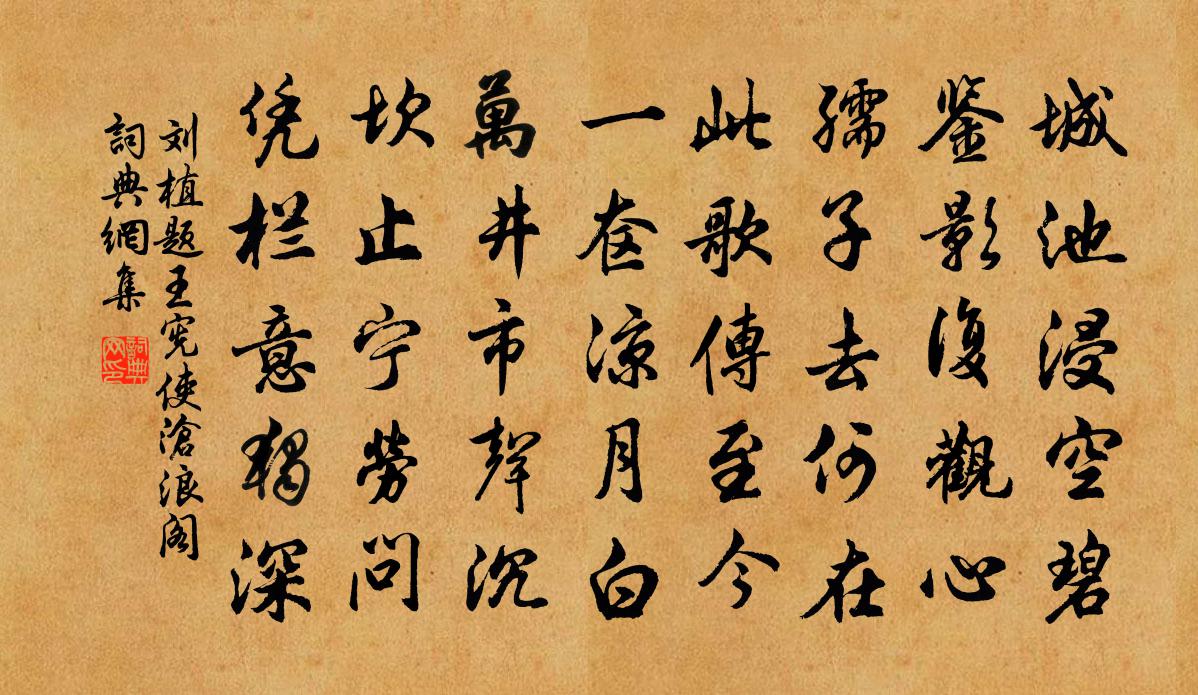 城池浸空碧
鉴影復觀心
孺子去何在
此歌傳至今
一奁涼月白
萬井市聲沉
坎止宁勞問
凭栏意獨深
刘植题王宪使滄浪阁
詞典網集
詞典网印